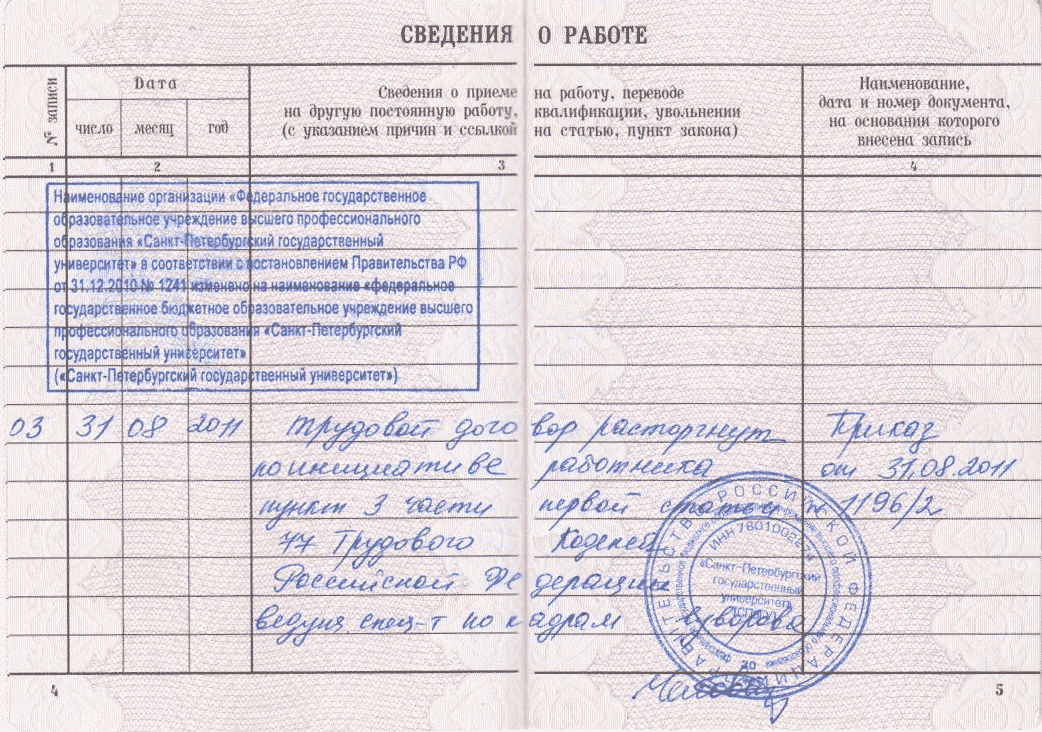 СВЕДЕНИЯ О РАБОТЕ
№ записи
Дата
число месяц год
Сведения о приеме на работу, переводе
на другую постоянную работу, квалификации, увольнении
(с указанием причин и ссылкой на статью, пункт закона)
Наименование,
дата и номер документа,
на основании которого
внесена запись
1 2 3 4
Наименование организации «Федеральное государственное
образовательное учреждение высшего профессионального
образования «Санкт-Петербургский государственный
университет» в соответствии с постановлением Правительства РФ
от 31.12.2010 № 1241 изменено на наименование «федеральное
государственное бюджетное образовательное учреждение высшего
профессионального образования «Санкт-Петербургский
государственный университет»
(«Санкт-Петербургский государственный университет»)
03 31 08 2011 трудовой договор расторгнут Приказ
по инициативе работника от 31.08.2011
пункт 3 части первой статьи № 1196/2
77 Трудового Кодекса
Российской Федерации
ведущ. спец-т по кадрам Суворова
ПРАВИТЕЛЬСТВО РОССИЙСКОЙ ФЕДЕРАЦИИ
ИНН 7801002274
«Санкт-Петербургский
государственный
университет»
(СПбГУ)
4 5